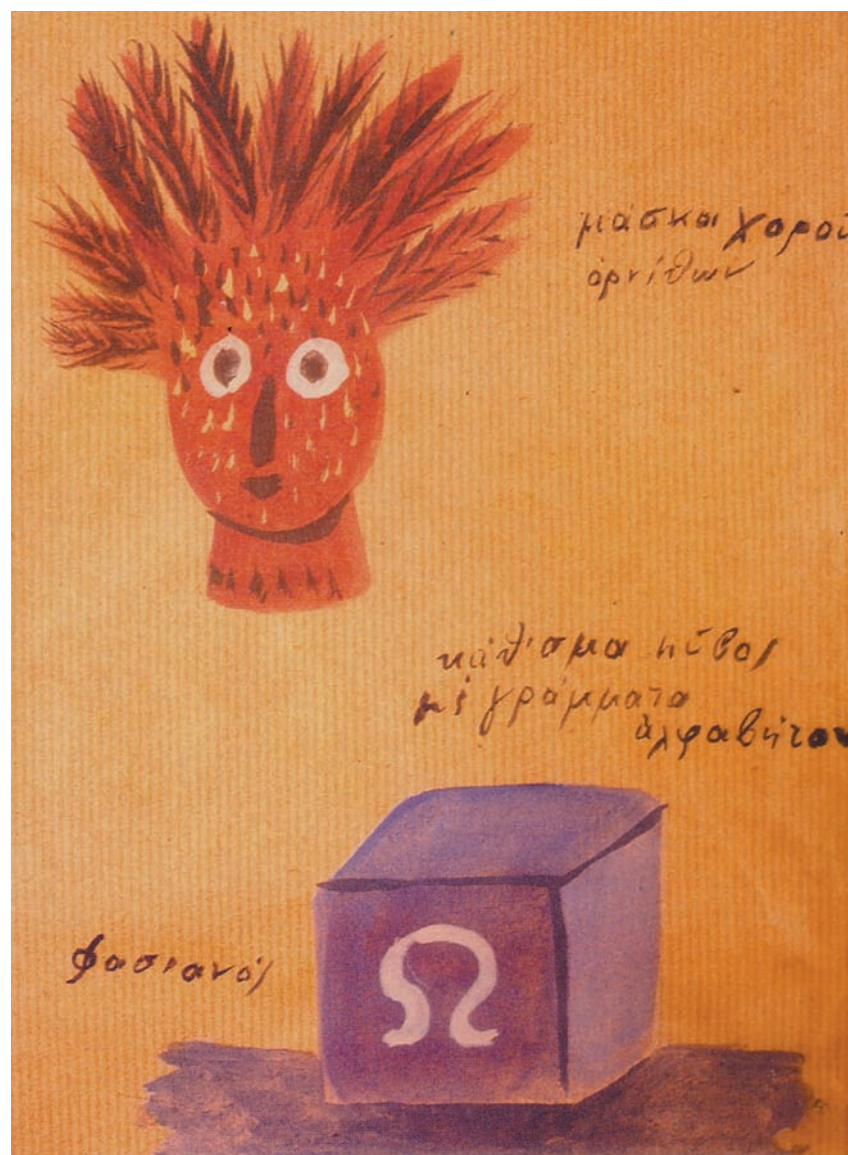 μάσκαι χοροῦ
ὀρνίθων
κάθισμα κύβος
μὲ γράμματα
ἀλφαβήτου
Ω
φασιανός